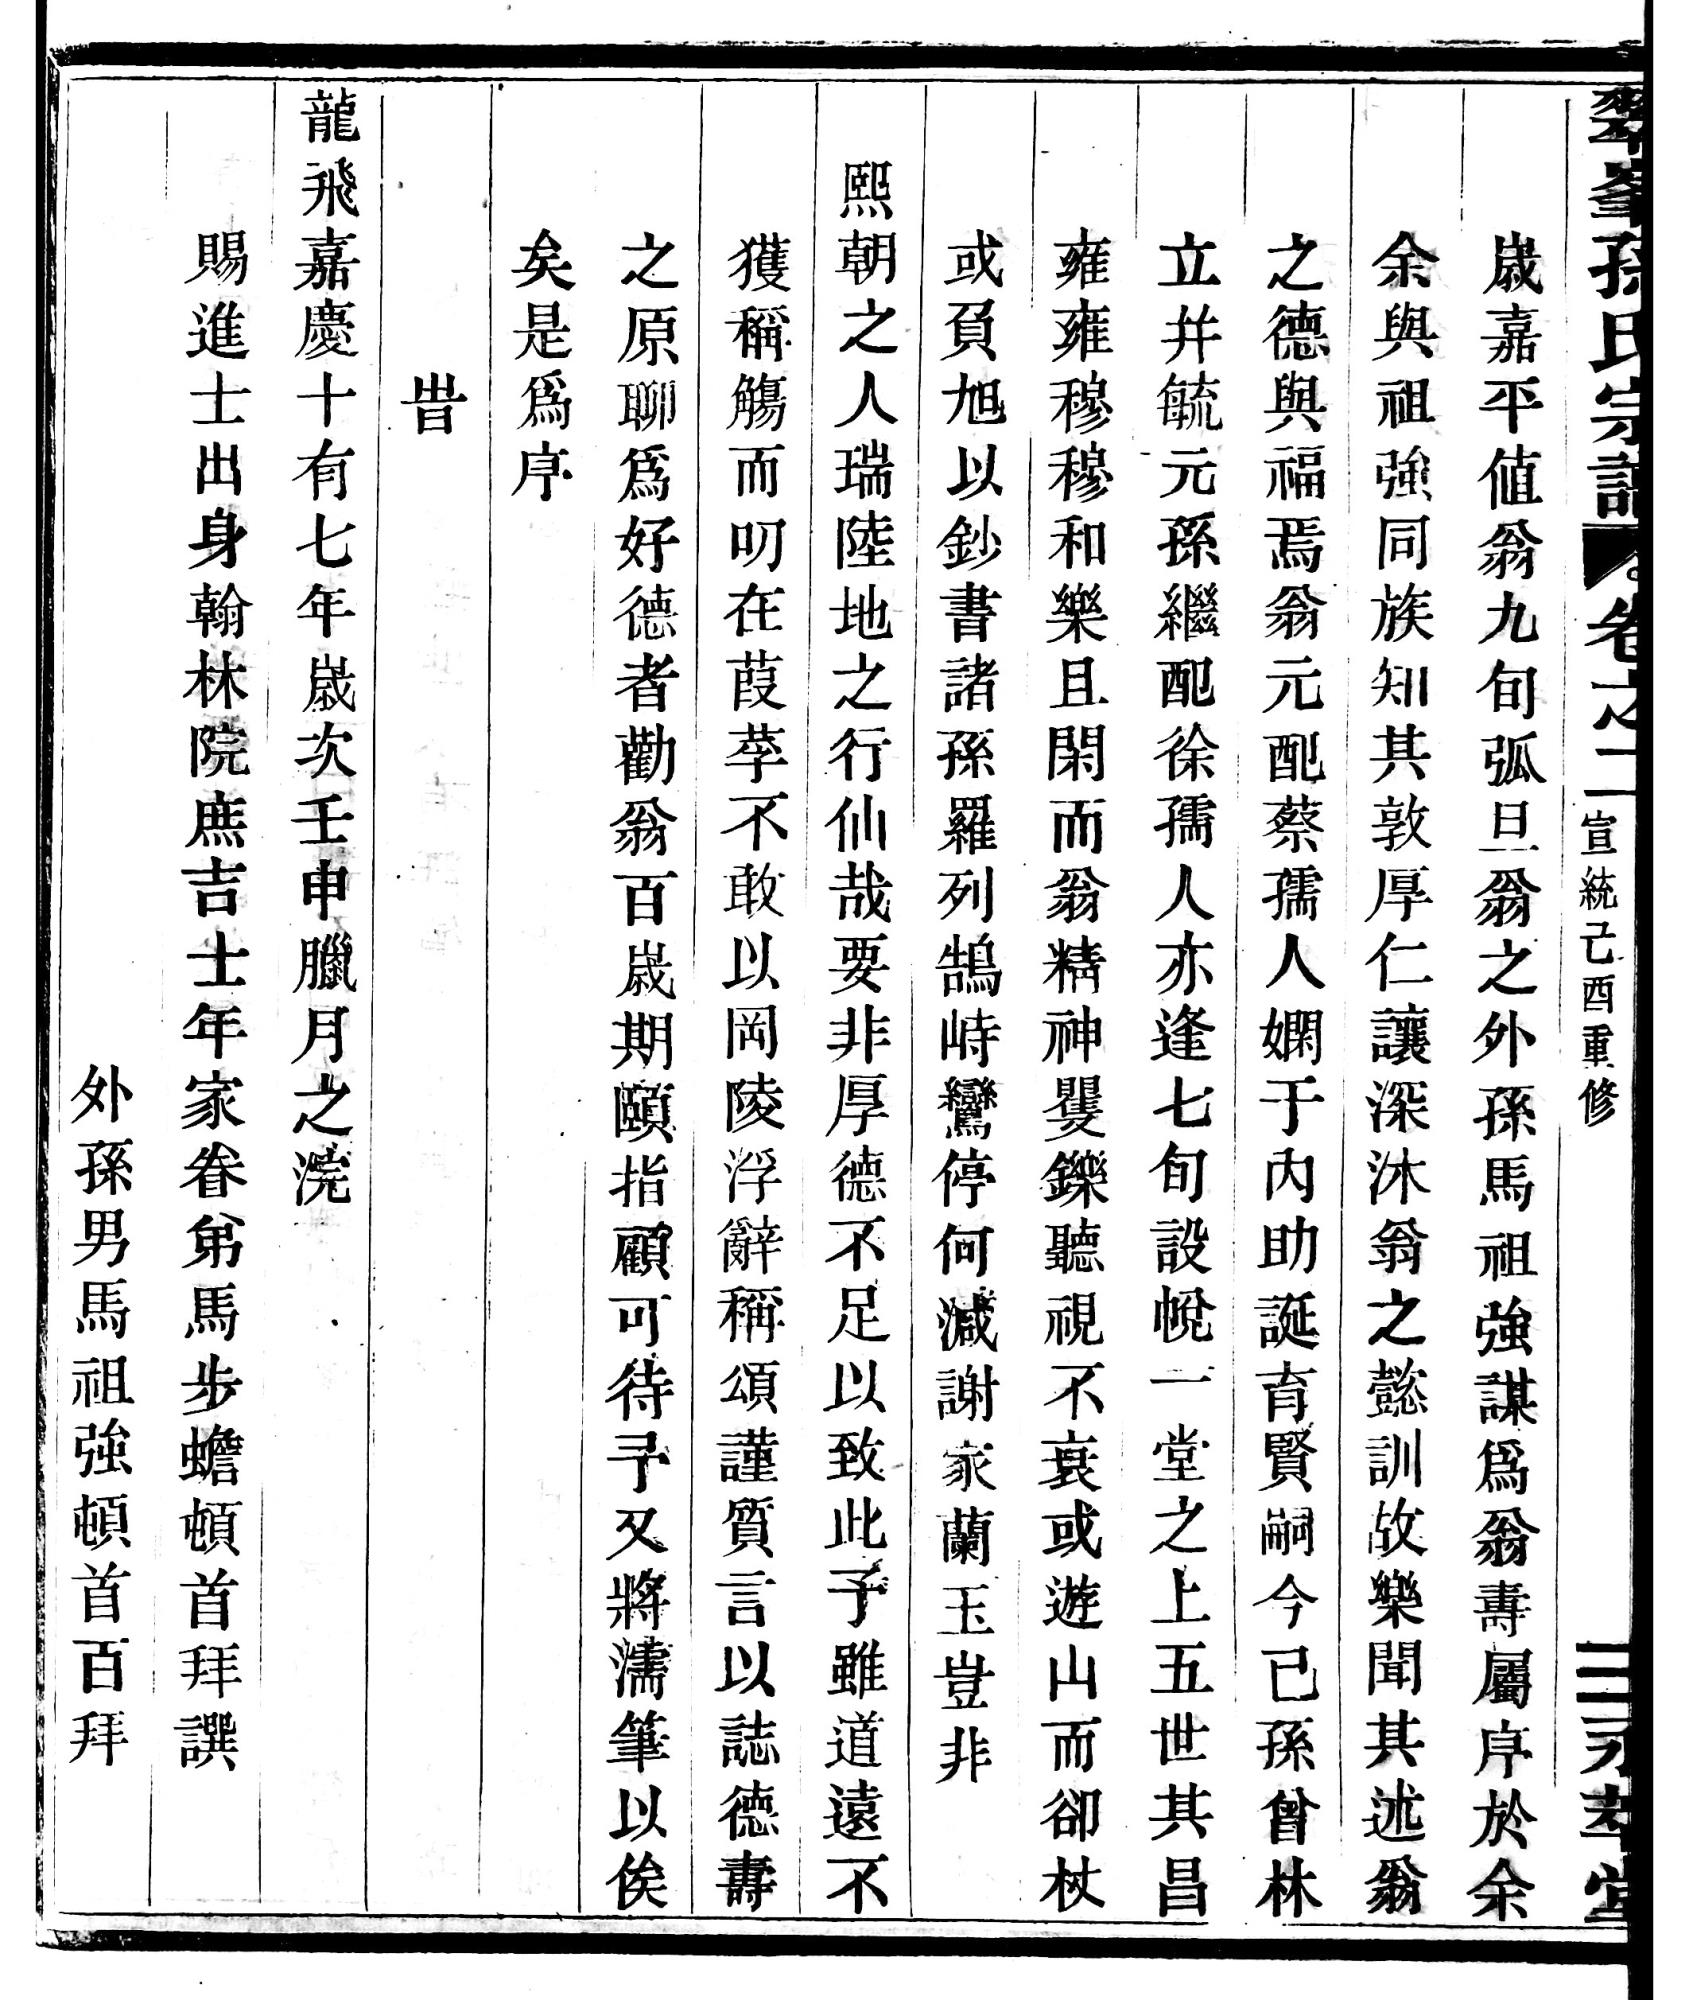 翠峯孫氏宗譜 卷之二 宣統己酉重修 三 永萃堂
歲嘉平值翁九旬弧旦翁之外孫馬祖強謀爲翁壽屬序於余
余與祖強同族知其敦厚仁讓深沐翁之懿訓故樂聞其述翁
之德與福焉翁元配蔡孺人嫻于內助誕育賢嗣今已孫曾林
立并毓元孫繼配徐孺人亦逢七旬設帨一堂之上五世其昌
雍雍穆穆和樂且閑而翁精神矍鑠聽視不衰或遊山而卻杖
或負旭以鈔書諸孫羅列鵠峙鸞停何減謝家蘭玉豈非
熙朝之人瑞陸地之行仙哉要非厚德不足以致此予雖道遠不
獲稱觴而叨在葭莩不敢以岡陵浮辭稱頌謹質言以誌德壽
之原聊爲好德者勸翁百歲期頤指顧可待予又將濡筆以俟
矣是爲序
旹
龍飛嘉慶十有七年歲次壬申臘月之浣
賜進士出身翰林院庶吉士年家眷弟馬步蟾頓首拜譔
外孫男馬祖強頓首百拜